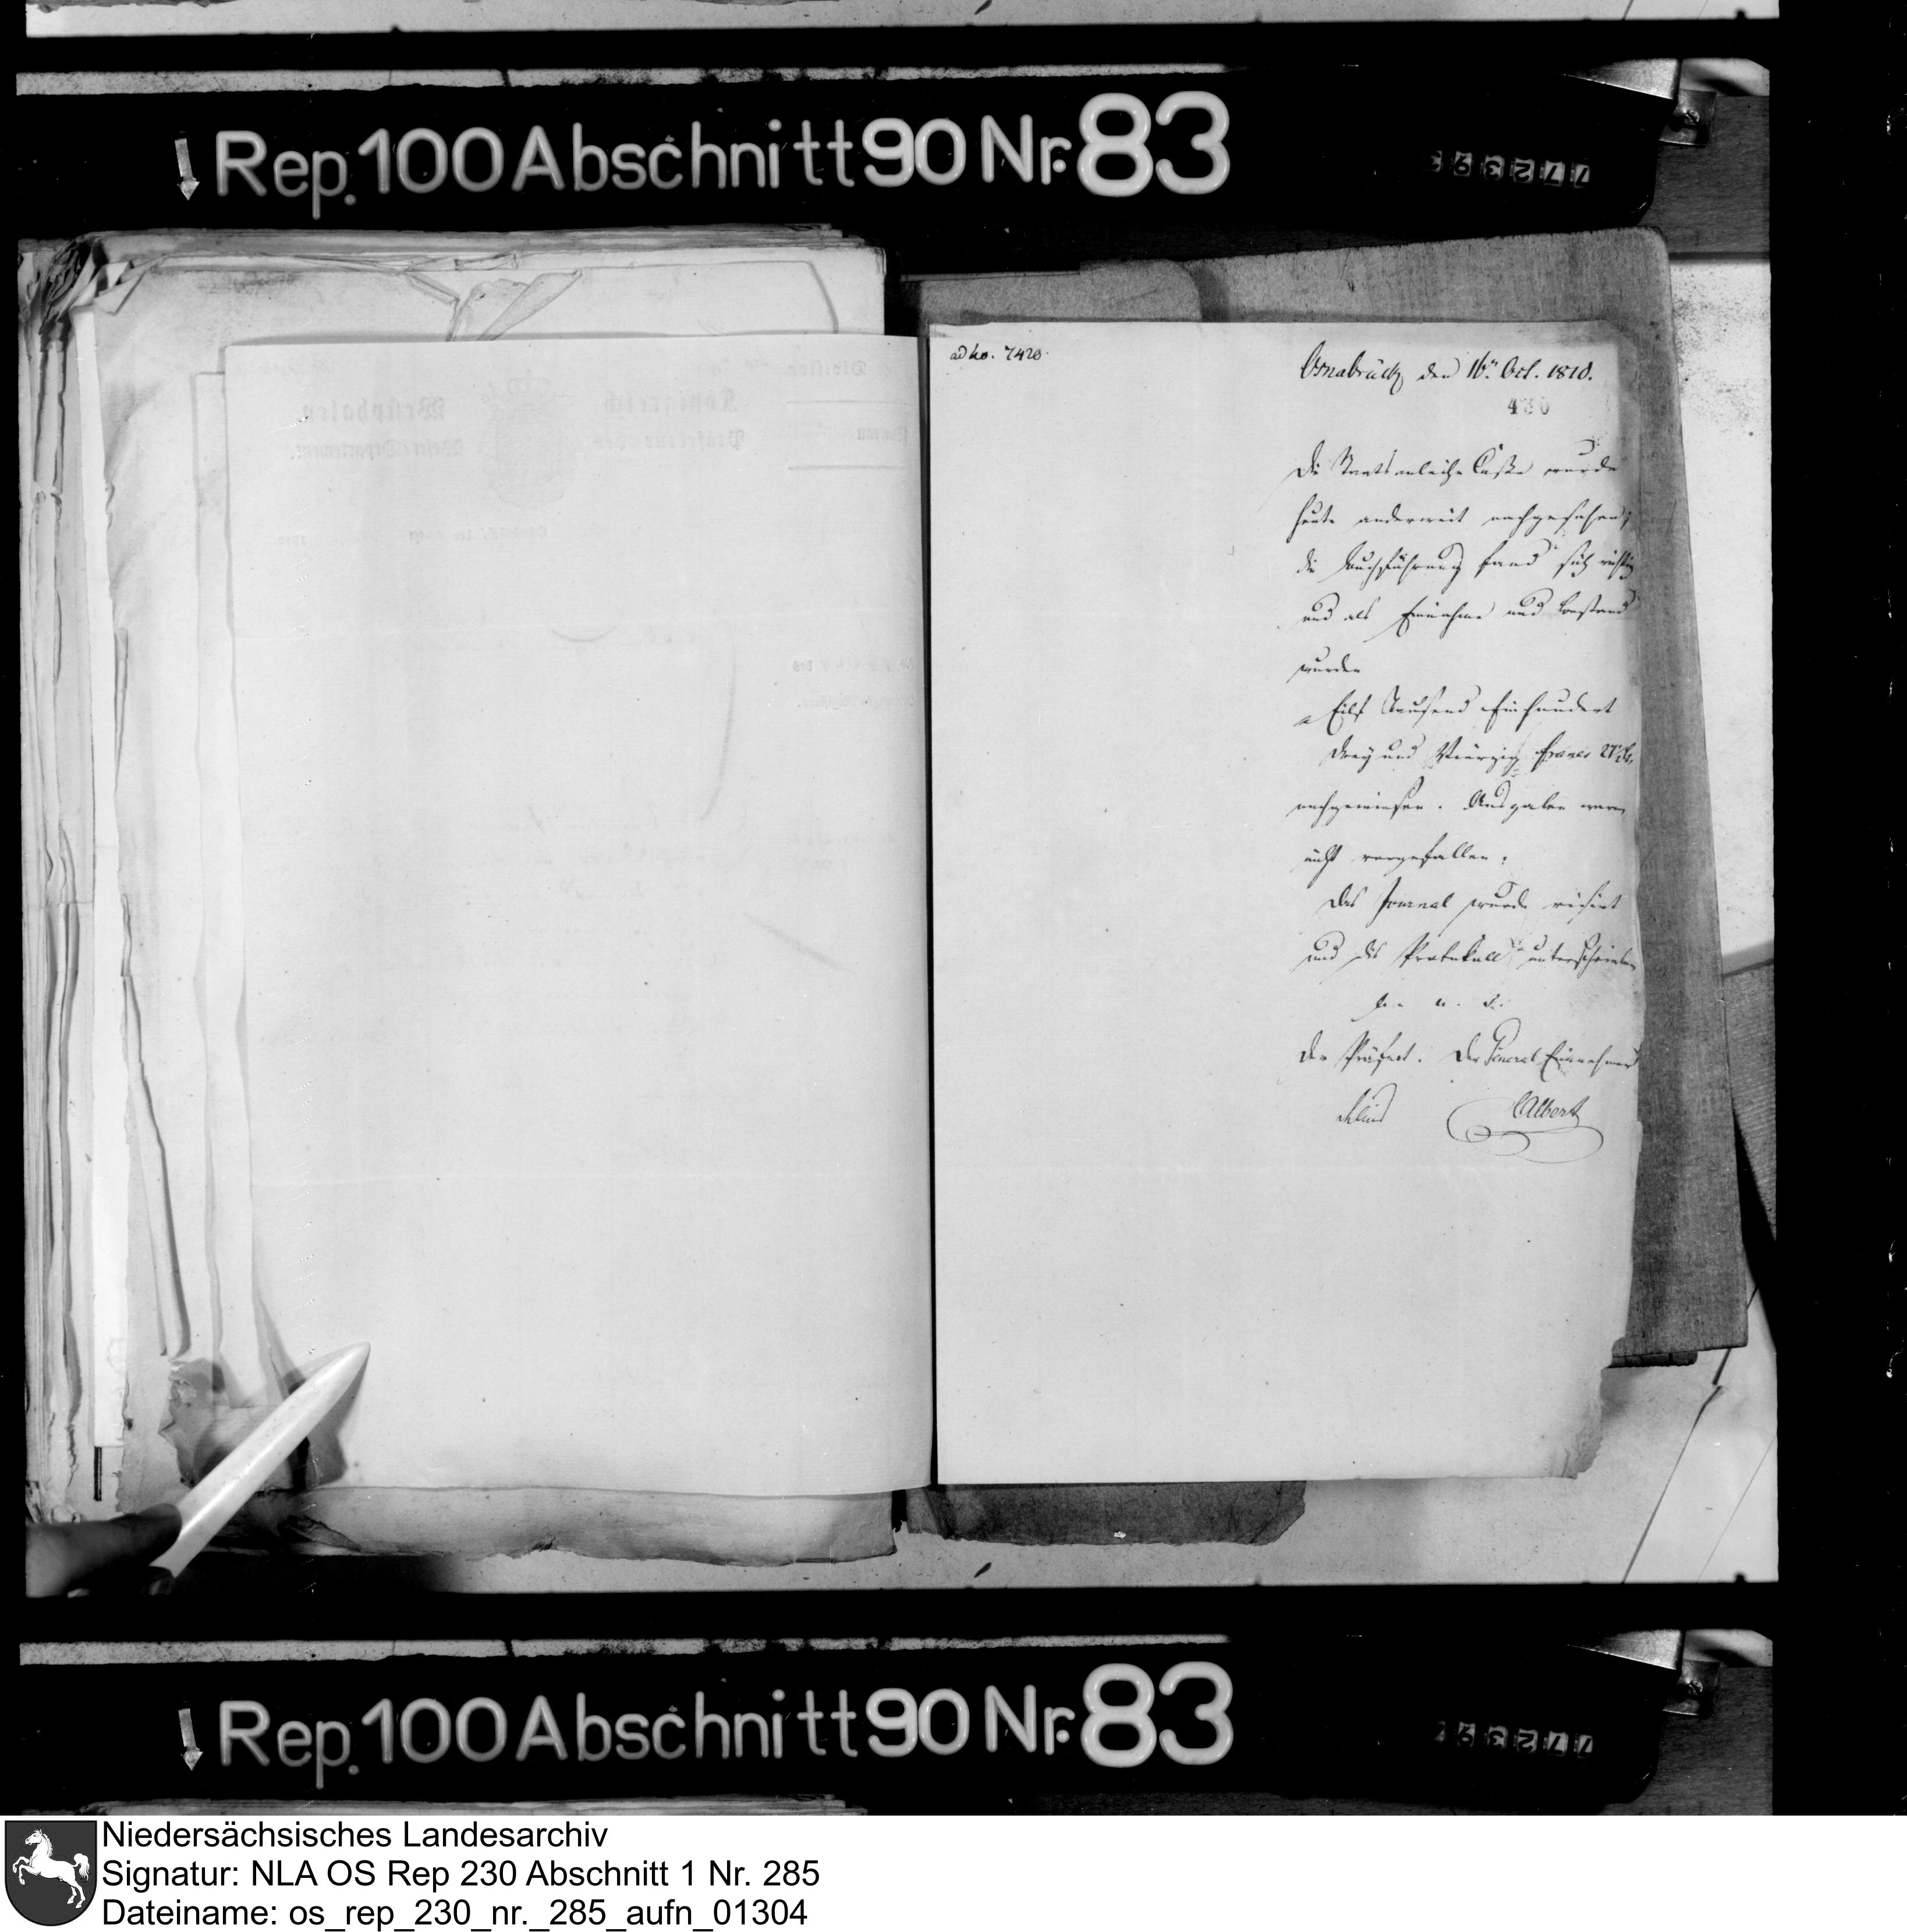 Rep. 100 Abschnitt 90 Nr. 83
ad No. 7420.
Osnabrück den 16n Oct. 1810.
430
Die Staatsanleihe Casse wurde
heute anderweit nachgesehen,
die Buchführung fand sich richtig
und als Einnahme und Bestand
wurden
Eilf Tausend Einhundert
drey und Vierzig Francs
nachgewiesen. Ausgaben waren
nicht vorgefallen.
Das Journal wurde visirt
und das Protokoll unterschrieben
u. s.
Der Präfect. Der General-Einnehmer
CAlbert
Rep. 100 Abschnitt 90 Nr. 83
Niedersächsisches Landesarchiv
Signatur: NLA OS Rep 230 Abschnitt 1 Nr. 285
Dateiname: os_rep_230_nr._285_aufn_01304